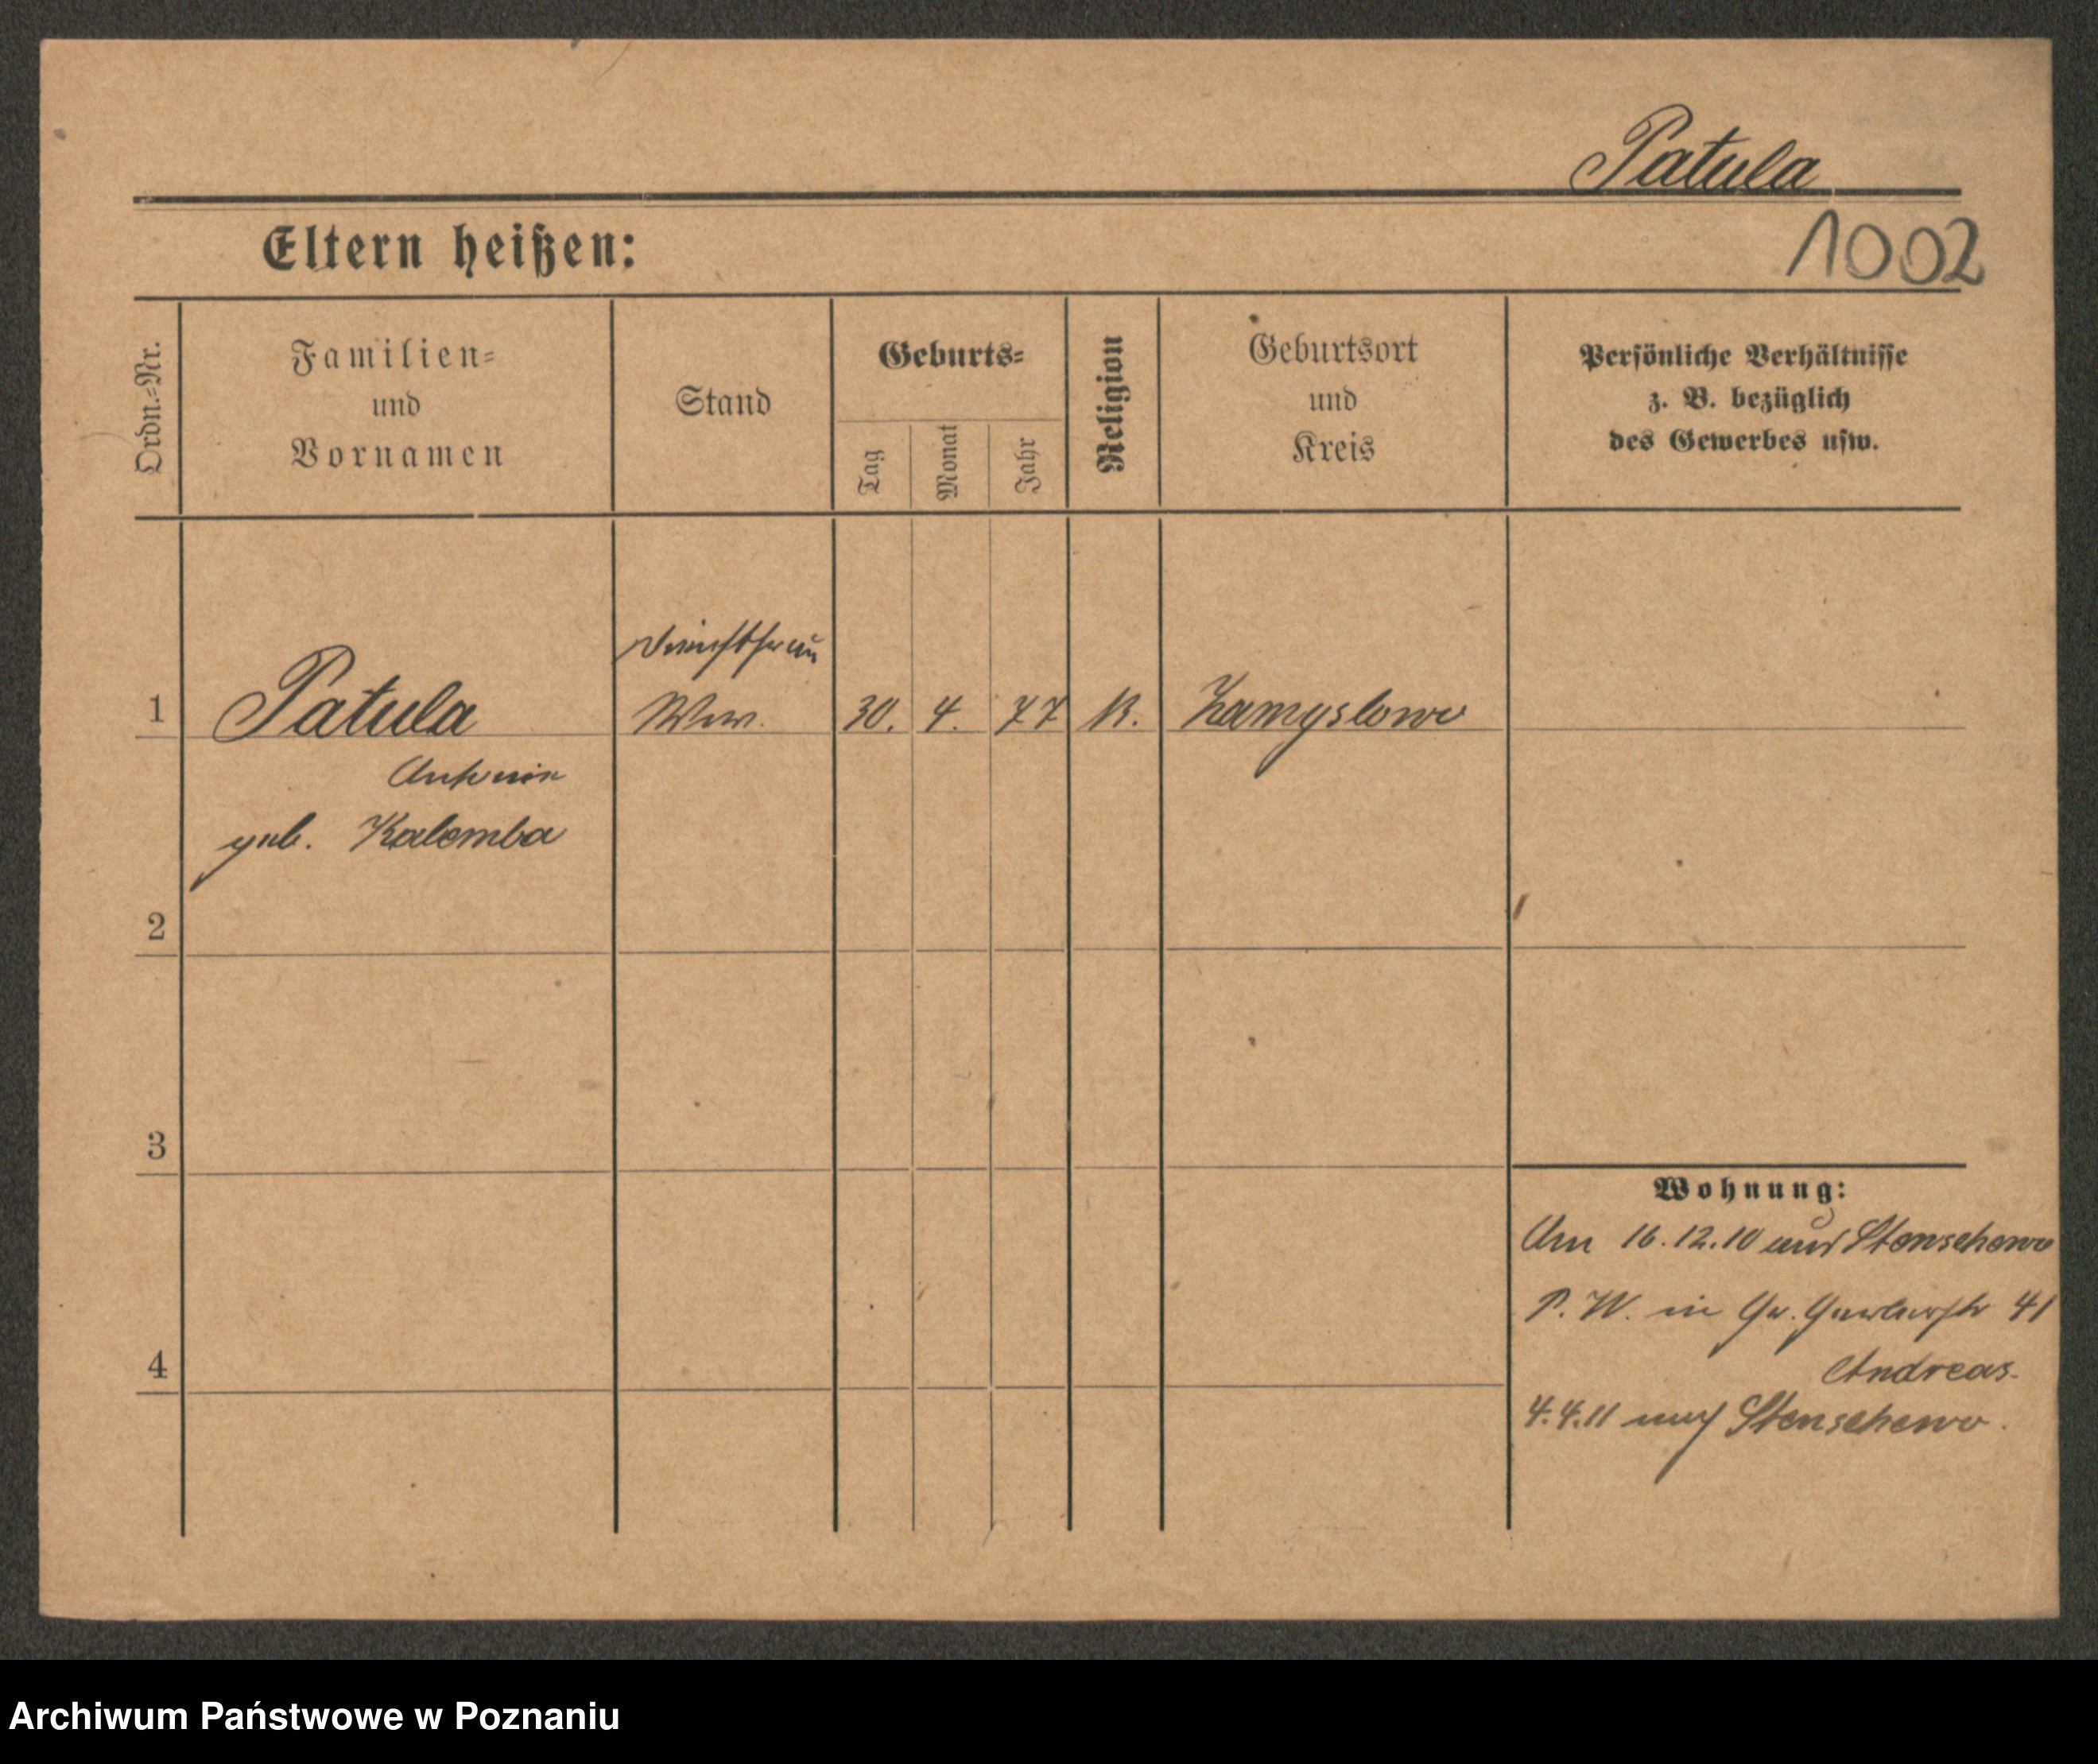 Patula
1002
Eltern heißen:
Ordn.-Nr.
Familien-
und
Vornamen
Stand
Geburts-
Tag
Monat
Jahr
Religion
Geburtsort
und
Kreis
Persönliche Verhältnisse
z. B. bezüglich
des Gewerbes usw.
Dienstfrau
1 Patula Ww. 30. 4. 77 K. Zamyslowo
Antonie
geb. Kalemba
2
3
4
Wohnung:
Am 16.12.10 aus Stenschewo
P. W. in Gr. Gerberstr 41
Andreas
4.4.11 nach Stenschewo.
Archiwum Państwowe w Poznaniu